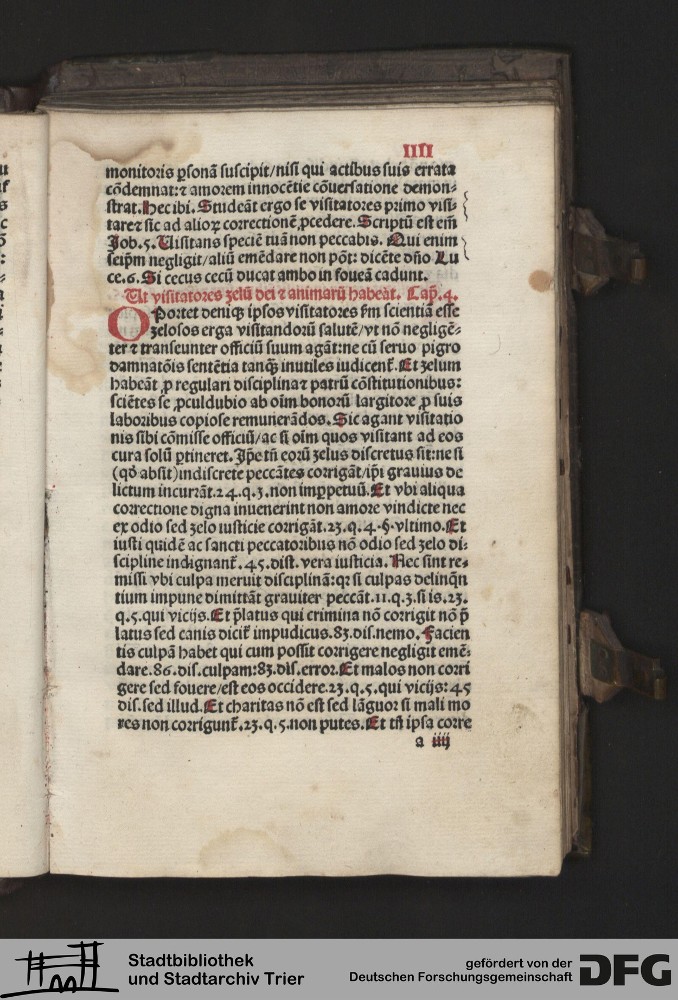 IIII
monitoris ꝑsonā suscipit/nisi qui actibus suis errata
cōdemnat:⁊ amorem innocētie cōuersatione demon⸗
strat.Hec ibi. Studeāt ergo se visitatores primo visi⸗
tare⁊ sic ad alioꝝ correctionē ꝓcedere. Scriptū est em̄
Job.5. Uisitans speciē tuā non peccabis. Qui enim
seip̄m negligit/aliū emēdare non pōt: dicēte dn̄o Lu
ce.6. Si cecus cecū ducat ambo in foueā cadunt.
Ut visitatores zelū dei ⁊ animarū habeāt. Cap̄.4.
OPortet deniqꝫ ipsos visitatores ẜm scientiā esse
zelosos erga visitandorū salutē/vt nō negligē⸗
ter ⁊ transeunter officiū suum agāt:ne cū seruo pigro
damnatōis sentētia tanqꝫ inutiles iudicent᷑. Et zelum
habeāt ꝓ regulari disciplina⁊ patrū cōstitutionibus:
sciētes se ꝓculdubio ab oīm bonorū largitore ꝓ suis
laboribus copiose remunerādos. Sic agant visitatio
nis sibi cōmisse officiū/ac si oīm quos visitant ad eos
cura solū ꝑtineret. Ip̄e tn̄ eorū zelus discretus sit:ne si
(qd̄ absit)indiscrete peccātes corrigāt/ip̄i grauius de
lictum incurrāt.24.q.3.non imꝑpetuū. Et vbi aliqua
correctione digna inuenerint non amore vindicte nec
ex odio sed zelo iusticie corrigāt.23.q.4.§.vltimo. Et
iusti quidē ac sancti peccatoribus nō odio sed zelo di⸗
scipline indignant᷑.45.dist.vera iusticia. Nec sint re⸗
missi vbi culpa meruit disciplinā:qꝛ si culpas delinqn̄
tium impune dimittāt grauiter peccāt.11.q.3.si is.23.
q.5.qui vicijs. Et p̄latus qui crimina nō corrigit nō p̄
latus sed canis dicit᷑ impudicus.83.dis.nemo. Facien
tis culpā habet qui cum possit corrigere negligit emē⸗
dare.86.dis.culpam:83.dis.error. Et malos non corri
gere sed fouere/est eos occidere.23.q.5.qui vicijs:45
dis.sed illud. Et charitas nō est sed lāguor si mali mo
res non corrigunt᷑.23.q.5.non putes. Et tn̄ ipsa corre
a iiij
Stadtbibliothek
und Stadtarchiv Trier
gefördert von der
Deutschen Forschungsgemeinschaft
DFG